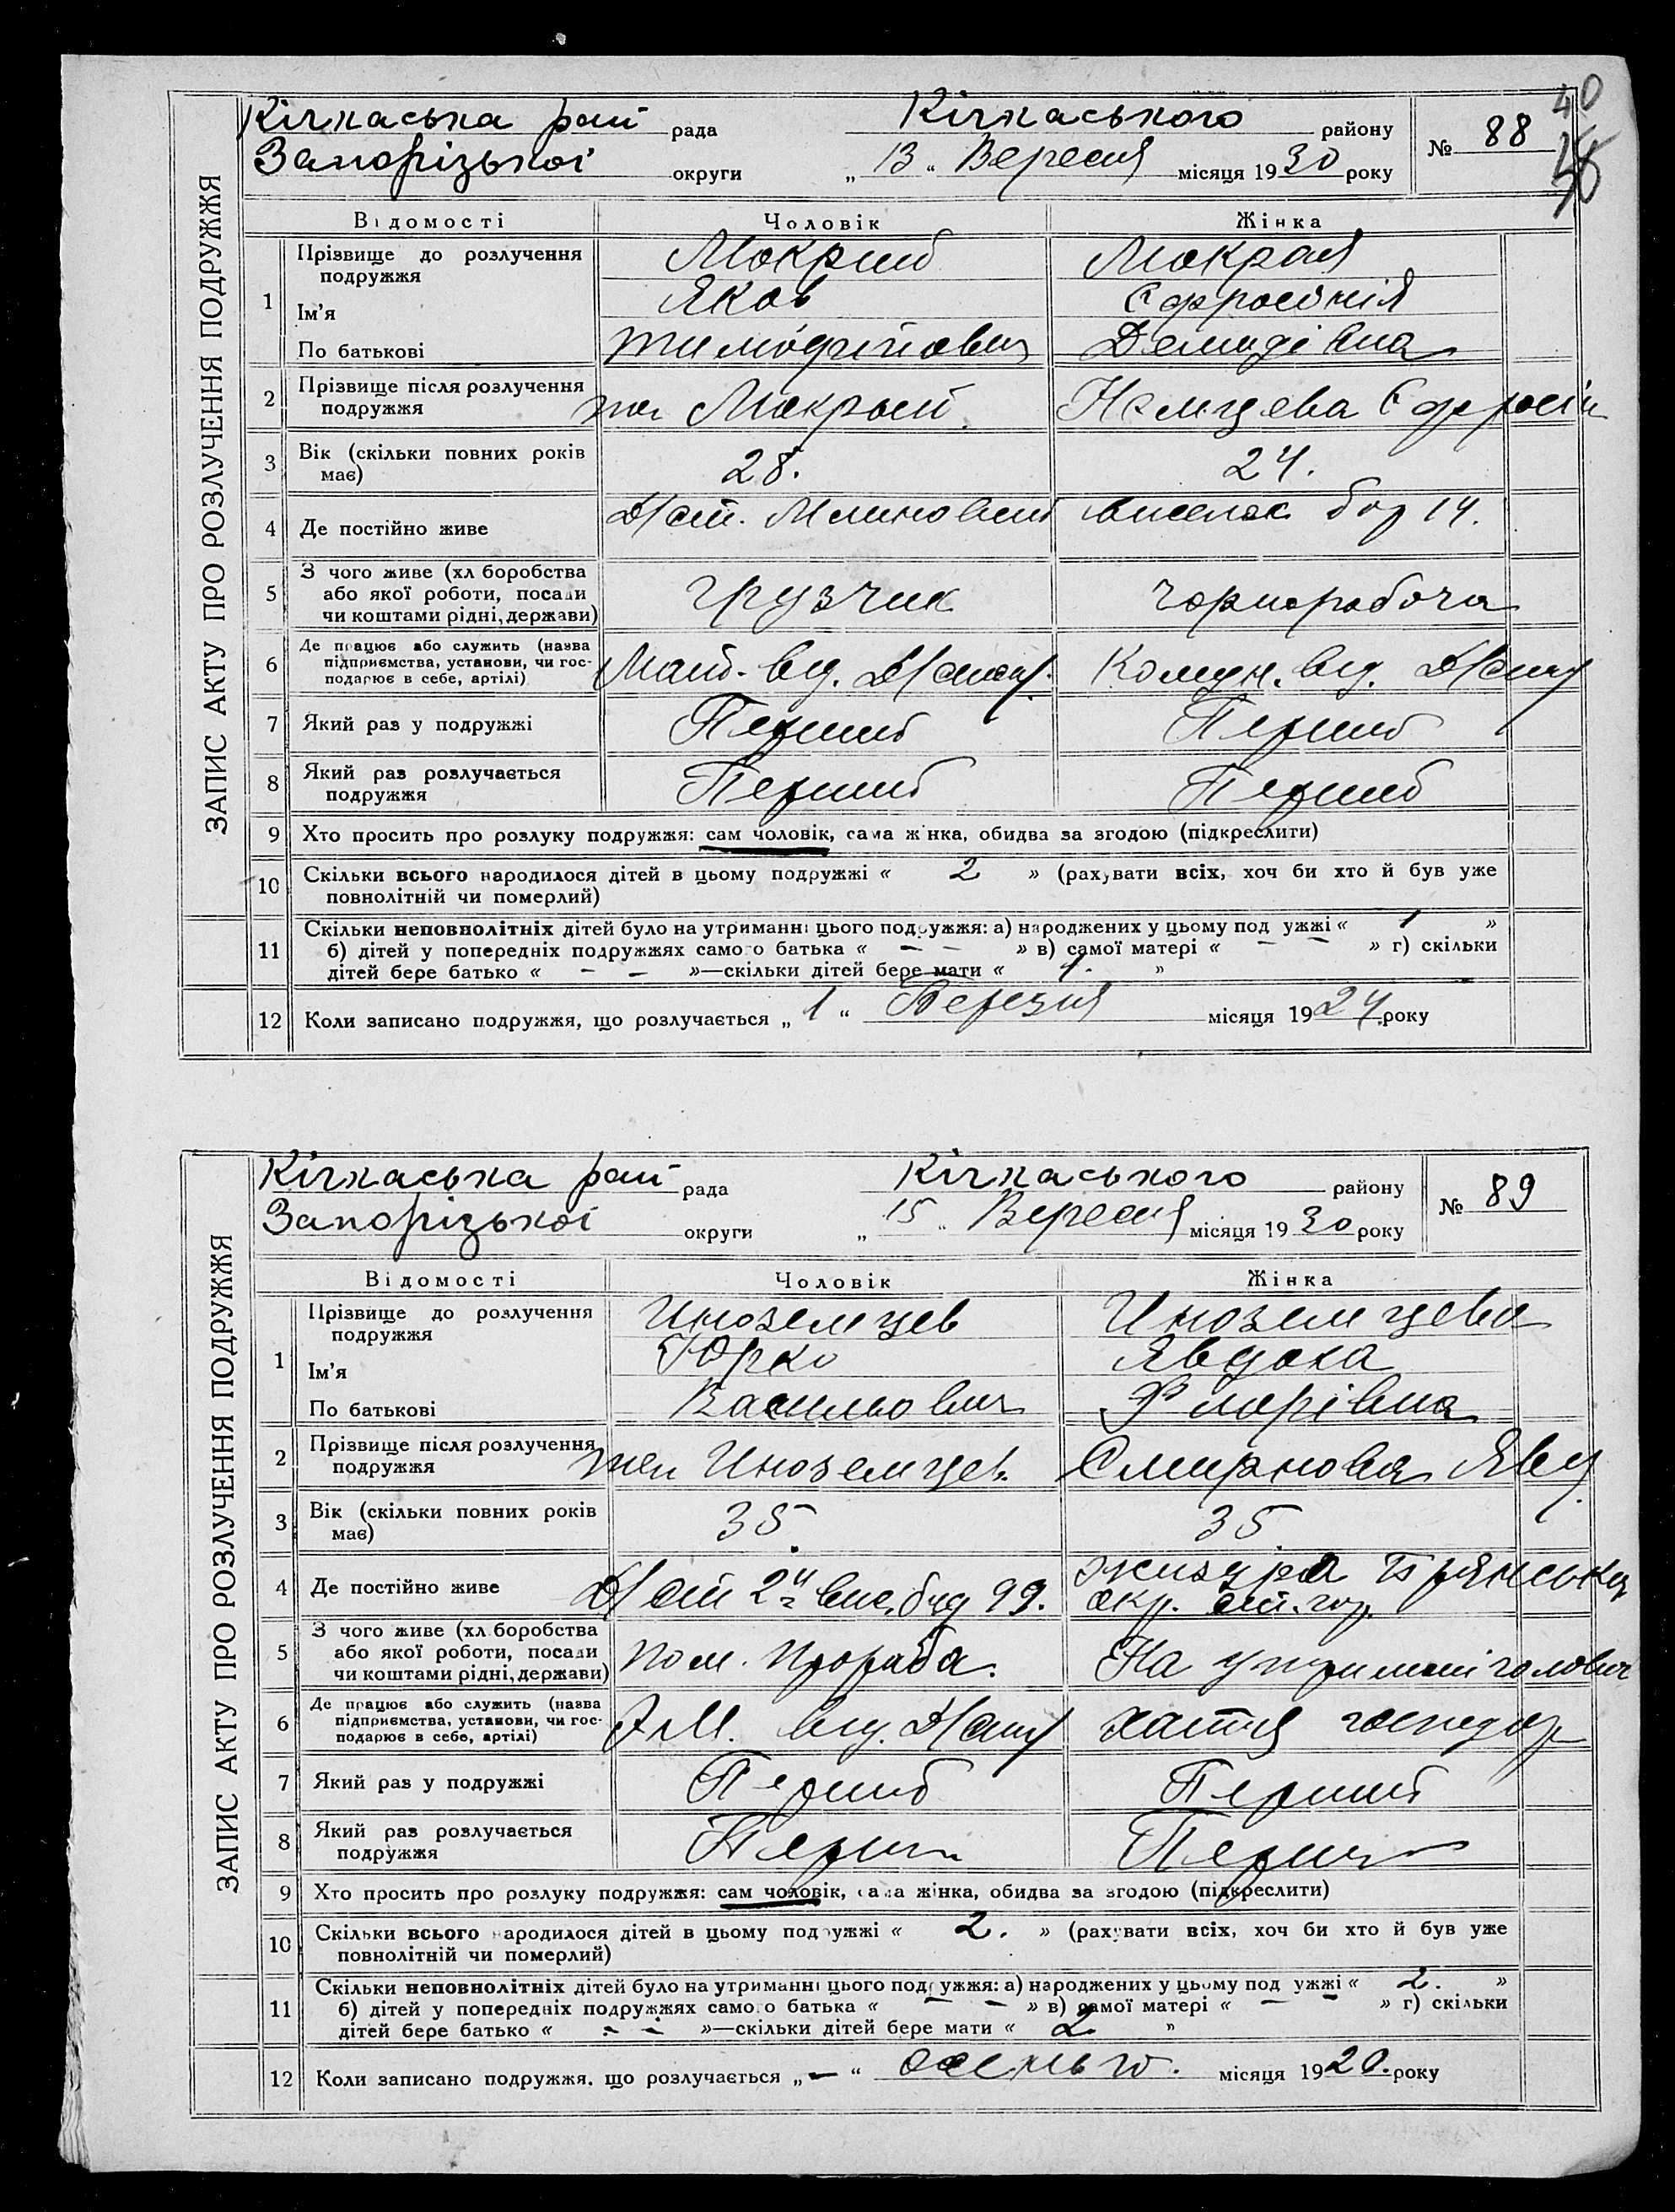 40
Кічкаська рай рада Кічкаського району № 88
Запорізької округи „ 13 “ Вересня місяця 1930 року
ЗАПИС АКТУ ПРО РОЗЛУЧЕННЯ ПОДРУЖЖЯ
Відомості Чоловік Жінка
1 Прізвище до розлучення подружжя Мокрий Мокрая
Ім'я Яков Єфросинія
По батькові Тимофійович Демидівна
2 Прізвище після розлучення подружжя Мокрый Немцева Єфросин
3 Вік (скільки повних років має) 28. 24.
4 Де постійно живе виселок 14.
5 З чого живе (хл боробства або якої роботи, посади чи коштами рідні, держави) грузчик чорноробоча
6 Де працює або служить (назва підприємства, установи, чи господарює в себе, артілі) від. Комун. від.
7 Який раз у подружжі Перший Перший
8 Який раз розлучається подружжя Перший Перший
9 Хто просить про розлуку подружжя: сам чоловік, сама жінка, обидва за згодою (підкреслити)
10 Скільки всього народилося дітей в цьому подружжі « 2 » (рахувати всіх, хоч би хто й був уже
повнолітній чи померлий)
11 Скільки неповнолітніх дітей було на утриманні цього подружжя: а) народжених у цьому подружжі « 1 »
б) дітей у попередніх подружжях самого батька « – – » в) самої матері « – – » г) скільки
дітей бере батько « – – »—скільки дітей бере мати « 1. »
12 Коли записано подружжя, що розлучається „ 1 “ Березня місяця 1924 року
Кічкаська рай рада Кічкаського району № 89
Запорізької округи „ 15 “ Вересня місяця 1930 року
ЗАПИС АКТУ ПРО РОЗЛУЧЕННЯ ПОДРУЖЖЯ
Відомості Чоловік Жінка
1 Прізвище до розлучення подружжя Иноземцев Иноземцева
Ім'я Юрко Явдоха
По батькові Васильович Фларівна
2 Прізвище після розлучення подружжя Иноземцев Смирнова Явд.
3 Вік (скільки повних років має) 35 35
4 Де постійно живе 99. Жиздра Брянська
окр.
5 З чого живе (хл боробства або якої роботи, посади чи коштами рідні, держави) пом. прораба. На утриманні чоловіка
6 Де працює або служить (назва підприємства, установи, чи господарює в себе, артілі) від. хатня господар
7 Який раз у подружжі Перший Перший
8 Який раз розлучається подружжя Перш Перш
9 Хто просить про розлуку подружжя: сам чоловік, сама жінка, обидва за згодою (підкреслити)
10 Скільки всього народилося дітей в цьому подружжі « 2. » (рахувати всіх, хоч би хто й був уже
повнолітній чи померлий)
11 Скільки неповнолітніх дітей було на утриманні цього подружжя: а) народжених у цьому подружжі « 2. »
б) дітей у попередніх подружжях самого батька « – – » в) самої матері « – – » г) скільки
дітей бере батько « – – »—скільки дітей бере мати « 2 »
12 Коли записано подружжя, що розлучається „ – “ осенью. місяця 1920. року